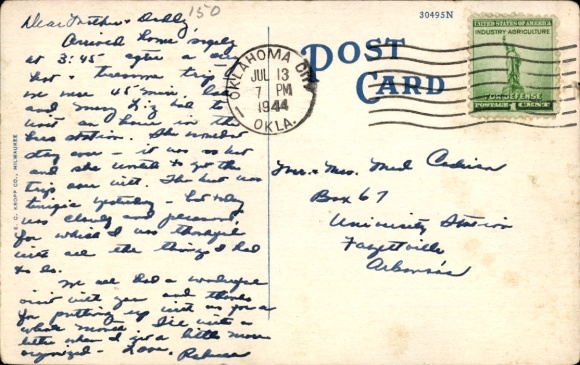 Dear Mother & Daddy
150
Arrived home safely
at 3:45 - after a
hot & tiresome trip
we were 45 min. late
and Mary Liz had to
wait an hour in the
bus station. She wouldn't
stay over - it was so hot
and she wanted to get the
trip over with. The heat was
yesterday - but today
was cloudy and pleasant,
for which I was thankful
with all the things I had
to do.
We all had a wonderful
visit with you and thanks
for putting up with us for a
whole month. I'll write a
letter when I get a little more
organized - Love, Rebecca
30495N
POST
CARD
OKLAHOMA CITY
JUL 13
7 PM
1944
OKLA.
UNITED STATES OF AMERICA
INDUSTRY AGRICULTURE
FOR DEFENSE
POSTAGE 1 CENT
Mr. & Mrs. Med
Box 67
University Station
Fayetteville
Arkansas
E. C. KROPP CO., MILWAUKEE